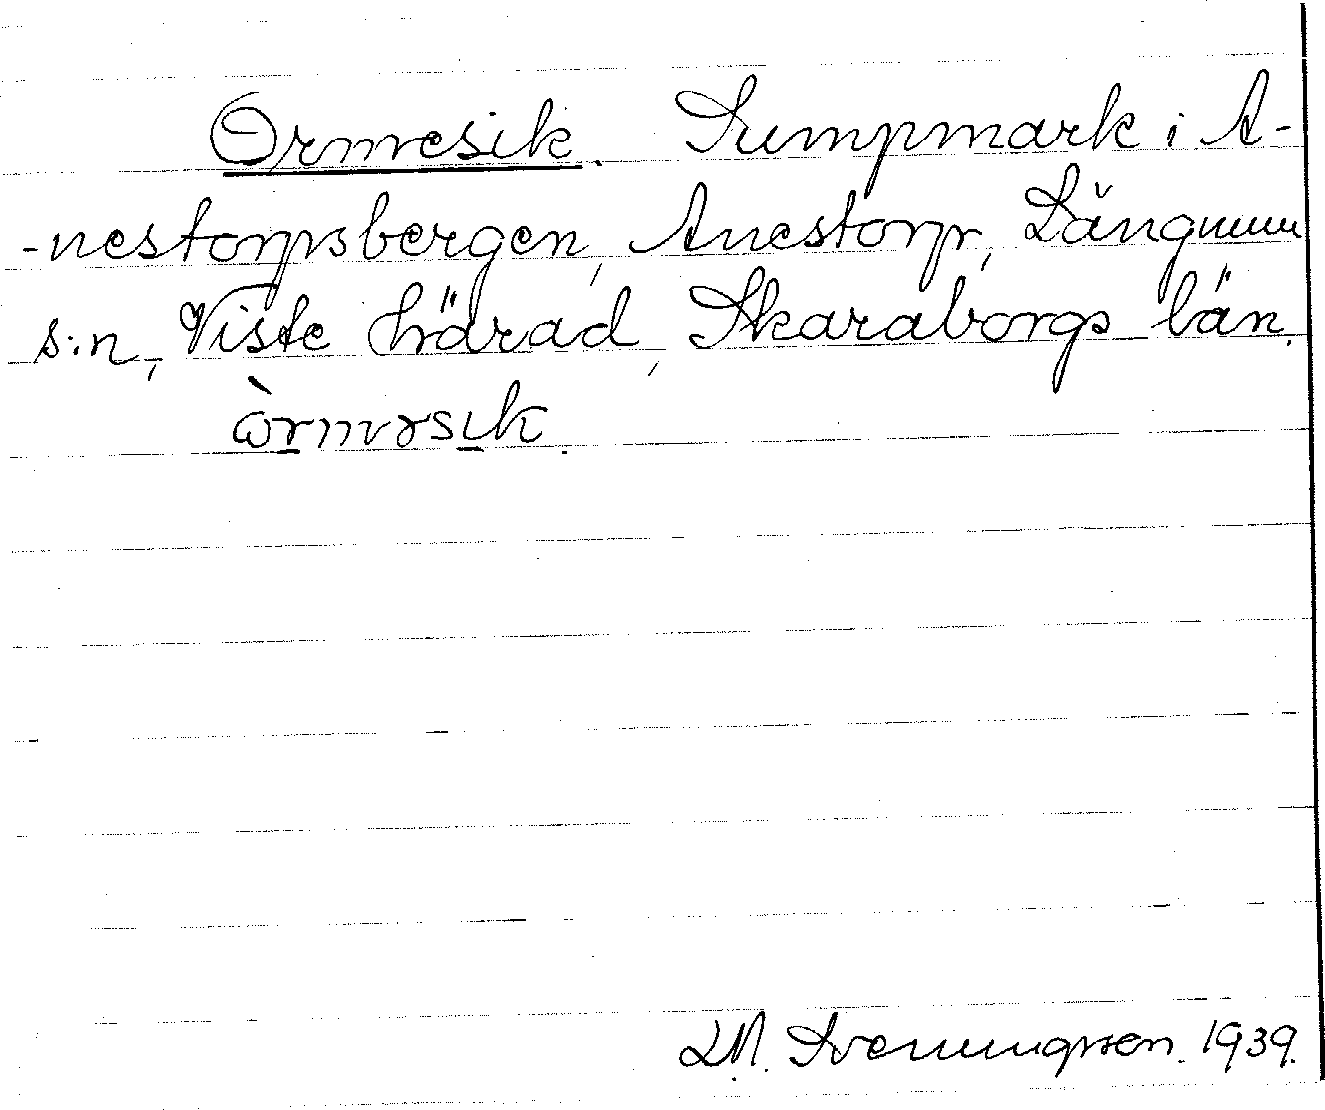 Ormesik. Sumpmark i A-
-nestorpsbergen, Anestorp, Längnum
s:n, Viste härad, Skaraborgs län.
òrmɤsik.
M. Svenungsson. 1939.